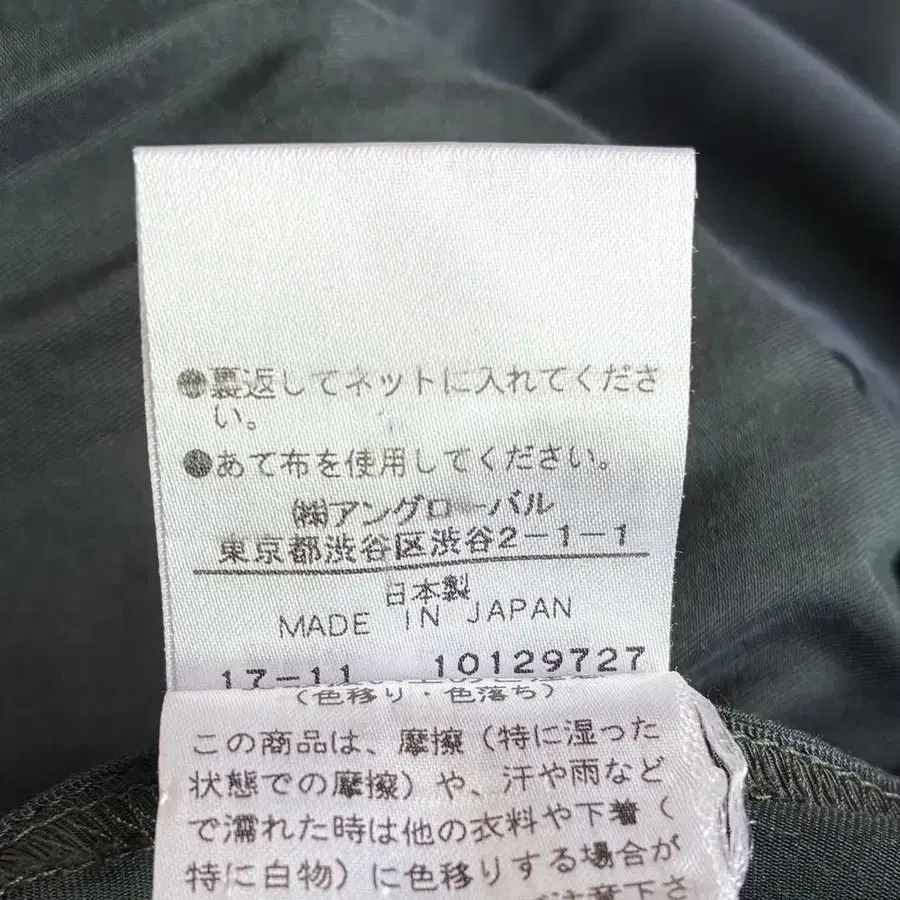 ●裏返してネットに入れてくださ
い。
●あて布を使用してください。
㈱アングローバル
東京都渋谷区渋谷2-1-1
日本製
MADE IN JAPAN
17-11 10129727
(色移り・色落ち)
この商品は、摩擦(特に湿った
状態での摩擦)や、汗や雨など
で濡れた時は他の衣料や下着(
特に白物)に色移りする場合が
注意下さ